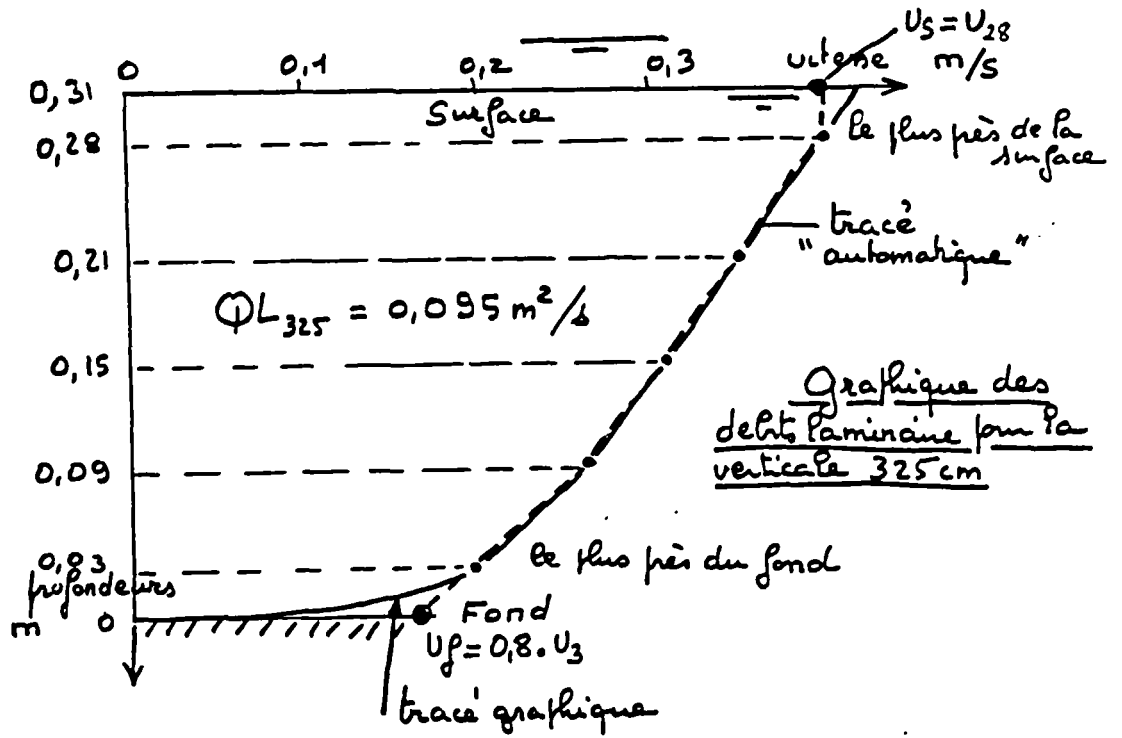 0 0,1 0,2 0,3 vitesse
US = U28
m/s
0,31
Surface
0,28
le plus près de la
surface
tracé
"automatique"
0,21
QL325 = 0,095 m²/s
0,15
Graphique des
debits laminaire pour la
verticale 325 cm
0,09
0,03
le plus près du fond
profondeurs
m 0
Fond
Uf = 0,8. U3
tracé graphique